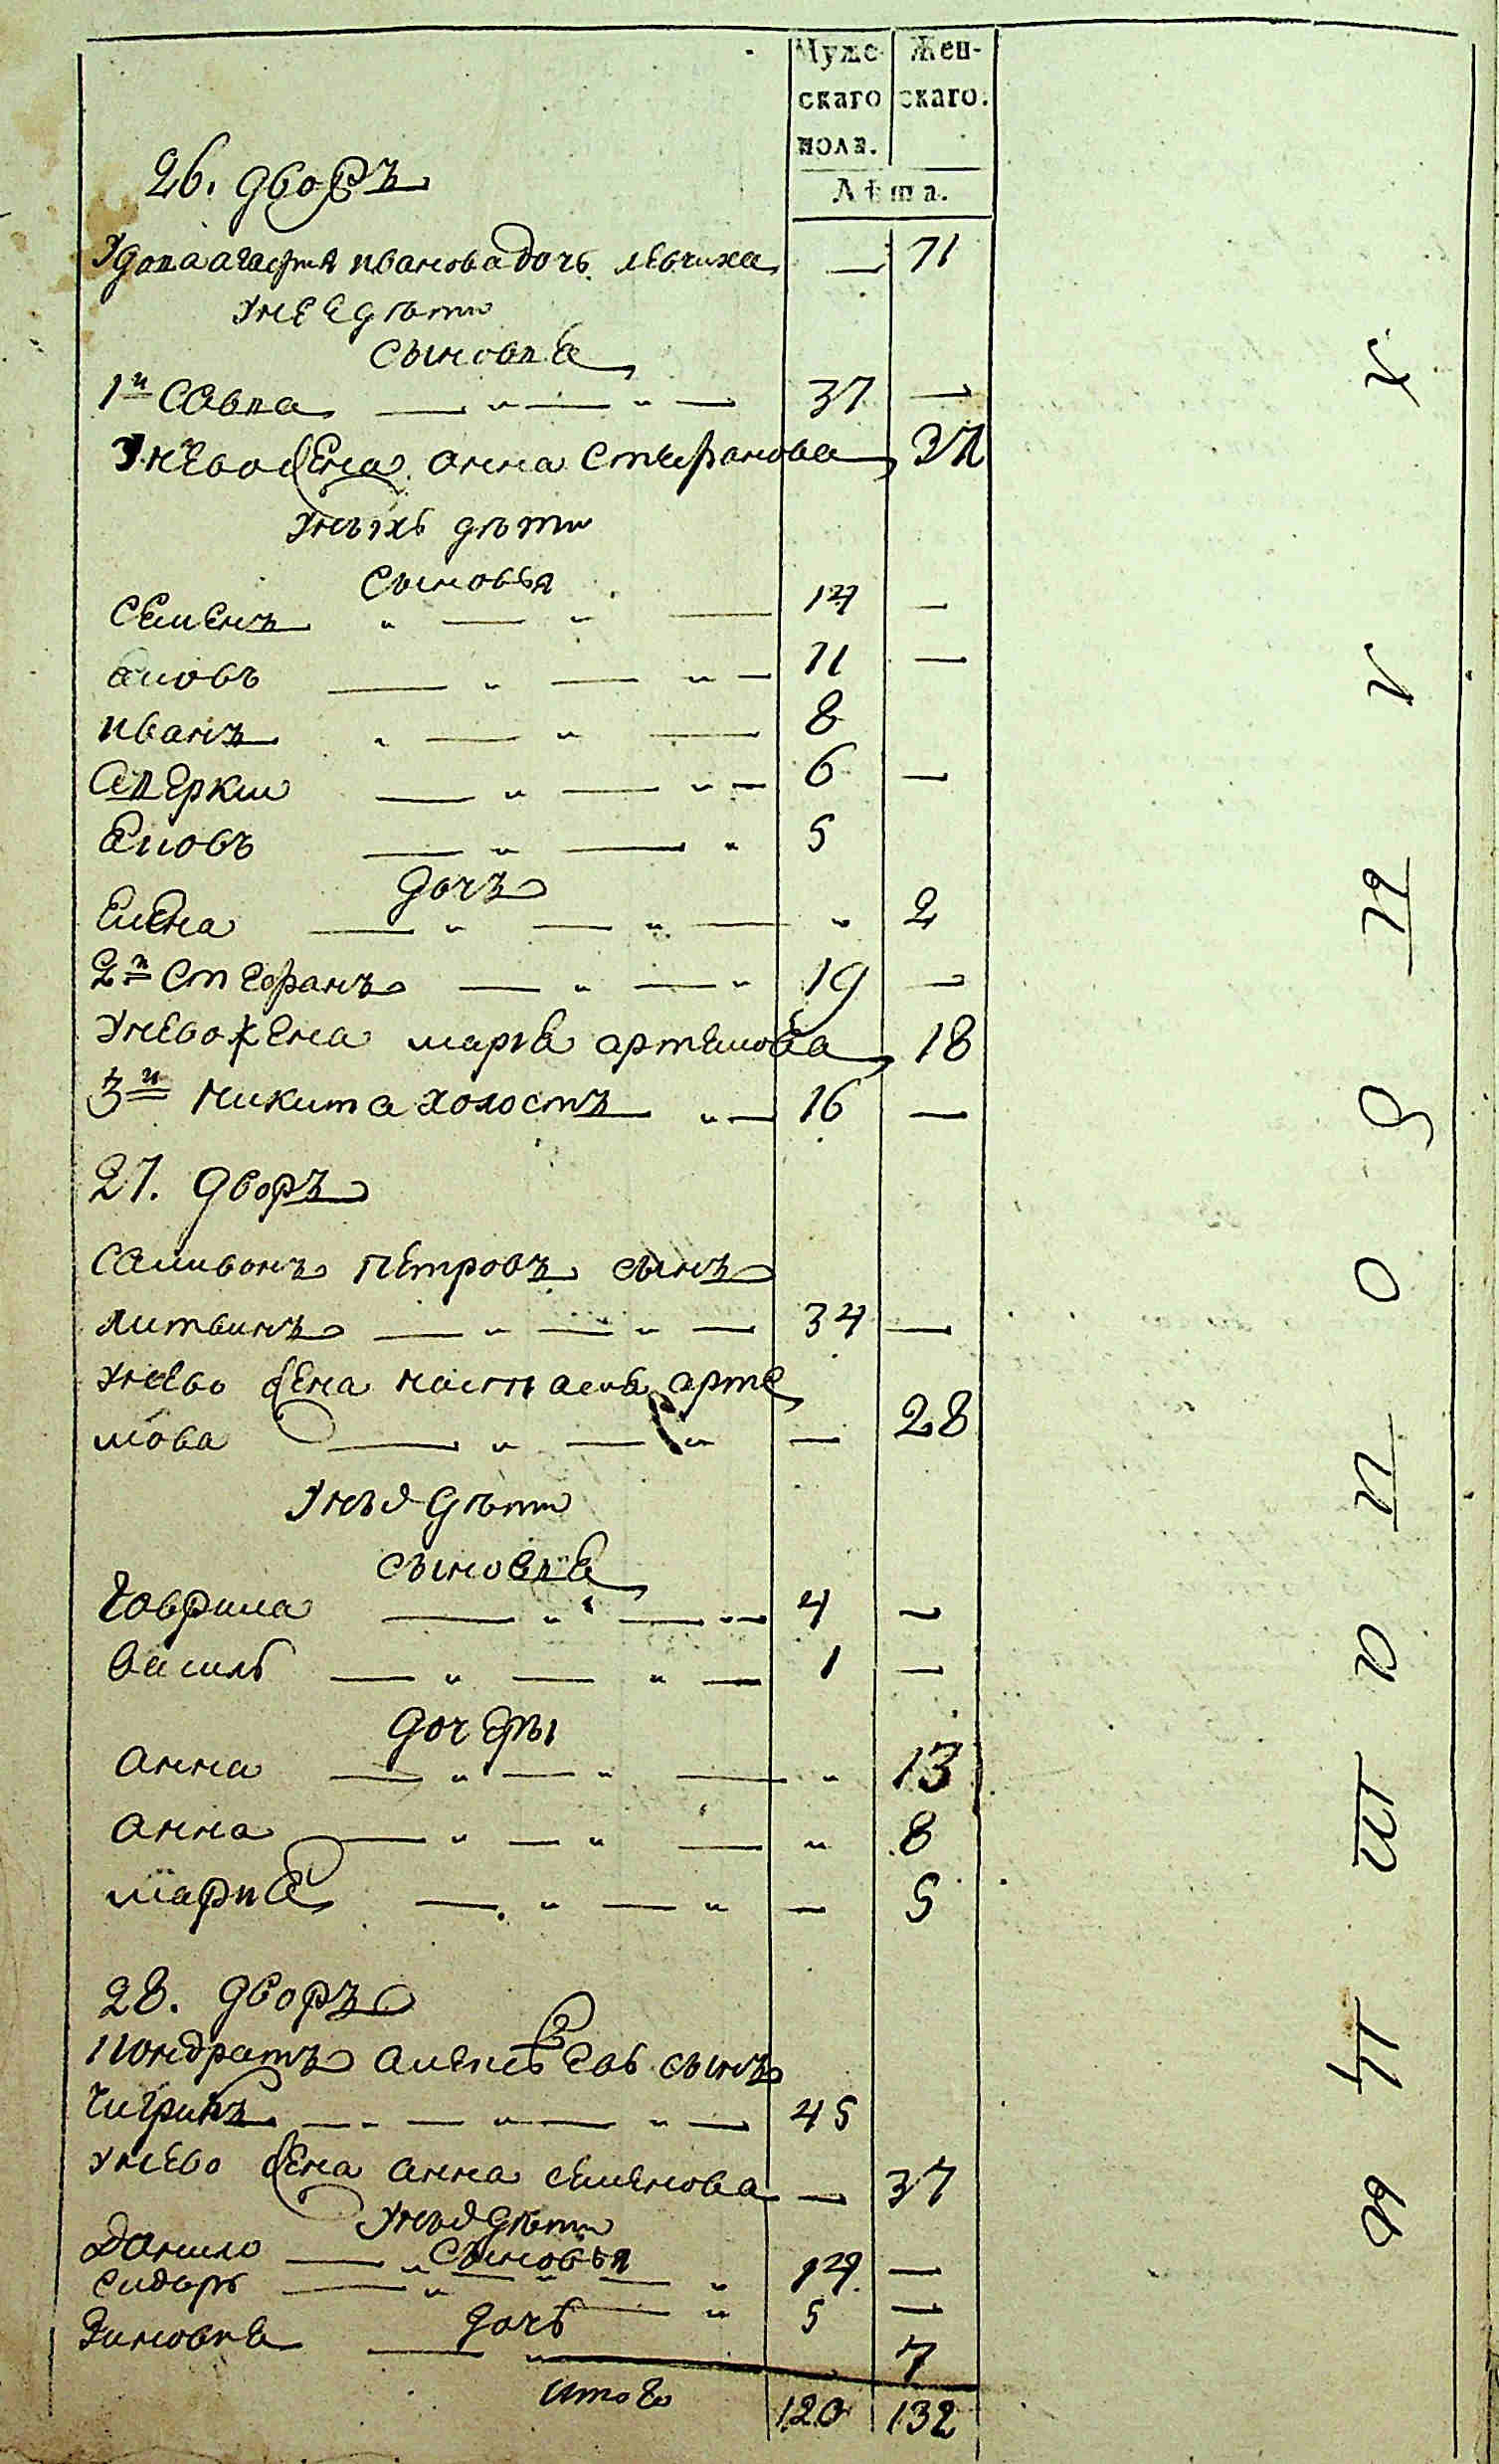 Муже- Жен-
скаго скаго.
полъ.
Лѣта.
26. дворъ
Удова агафия иванова дочь левчиха — 71
У нее дѣти
сыновия
1й Савва 37 —
У нево жена анна стефанова 32
У нъихъ дѣти
сыновья
Семенъ 14 —
яковъ 11 —
иванъ 8
аверки 6 —
яковъ 5
дочъ
Елена 2
2й Стефанъ 19 —
У нево жена марья артемова 18
3й никита холостъ 16 —
27. дворъ
Саливонъ петровъ сынъ
литвинъ 34 —
У нево жена настасия арте
мова — 28
У нъхъ дѣти
сыновия
Гаврила 4 —
василь 1 —
дочеры
анна 13
анна 8
мария — 5
28. дворъ
Кондратъ алексѣевъ сынъ
Чигринъ 45
У нево жена анна семенова — 37
У нъхъ дѣти
сыновья
Данило 14 —
сидоръ 5 —
дочь
Зиновия 7
итого 120 132